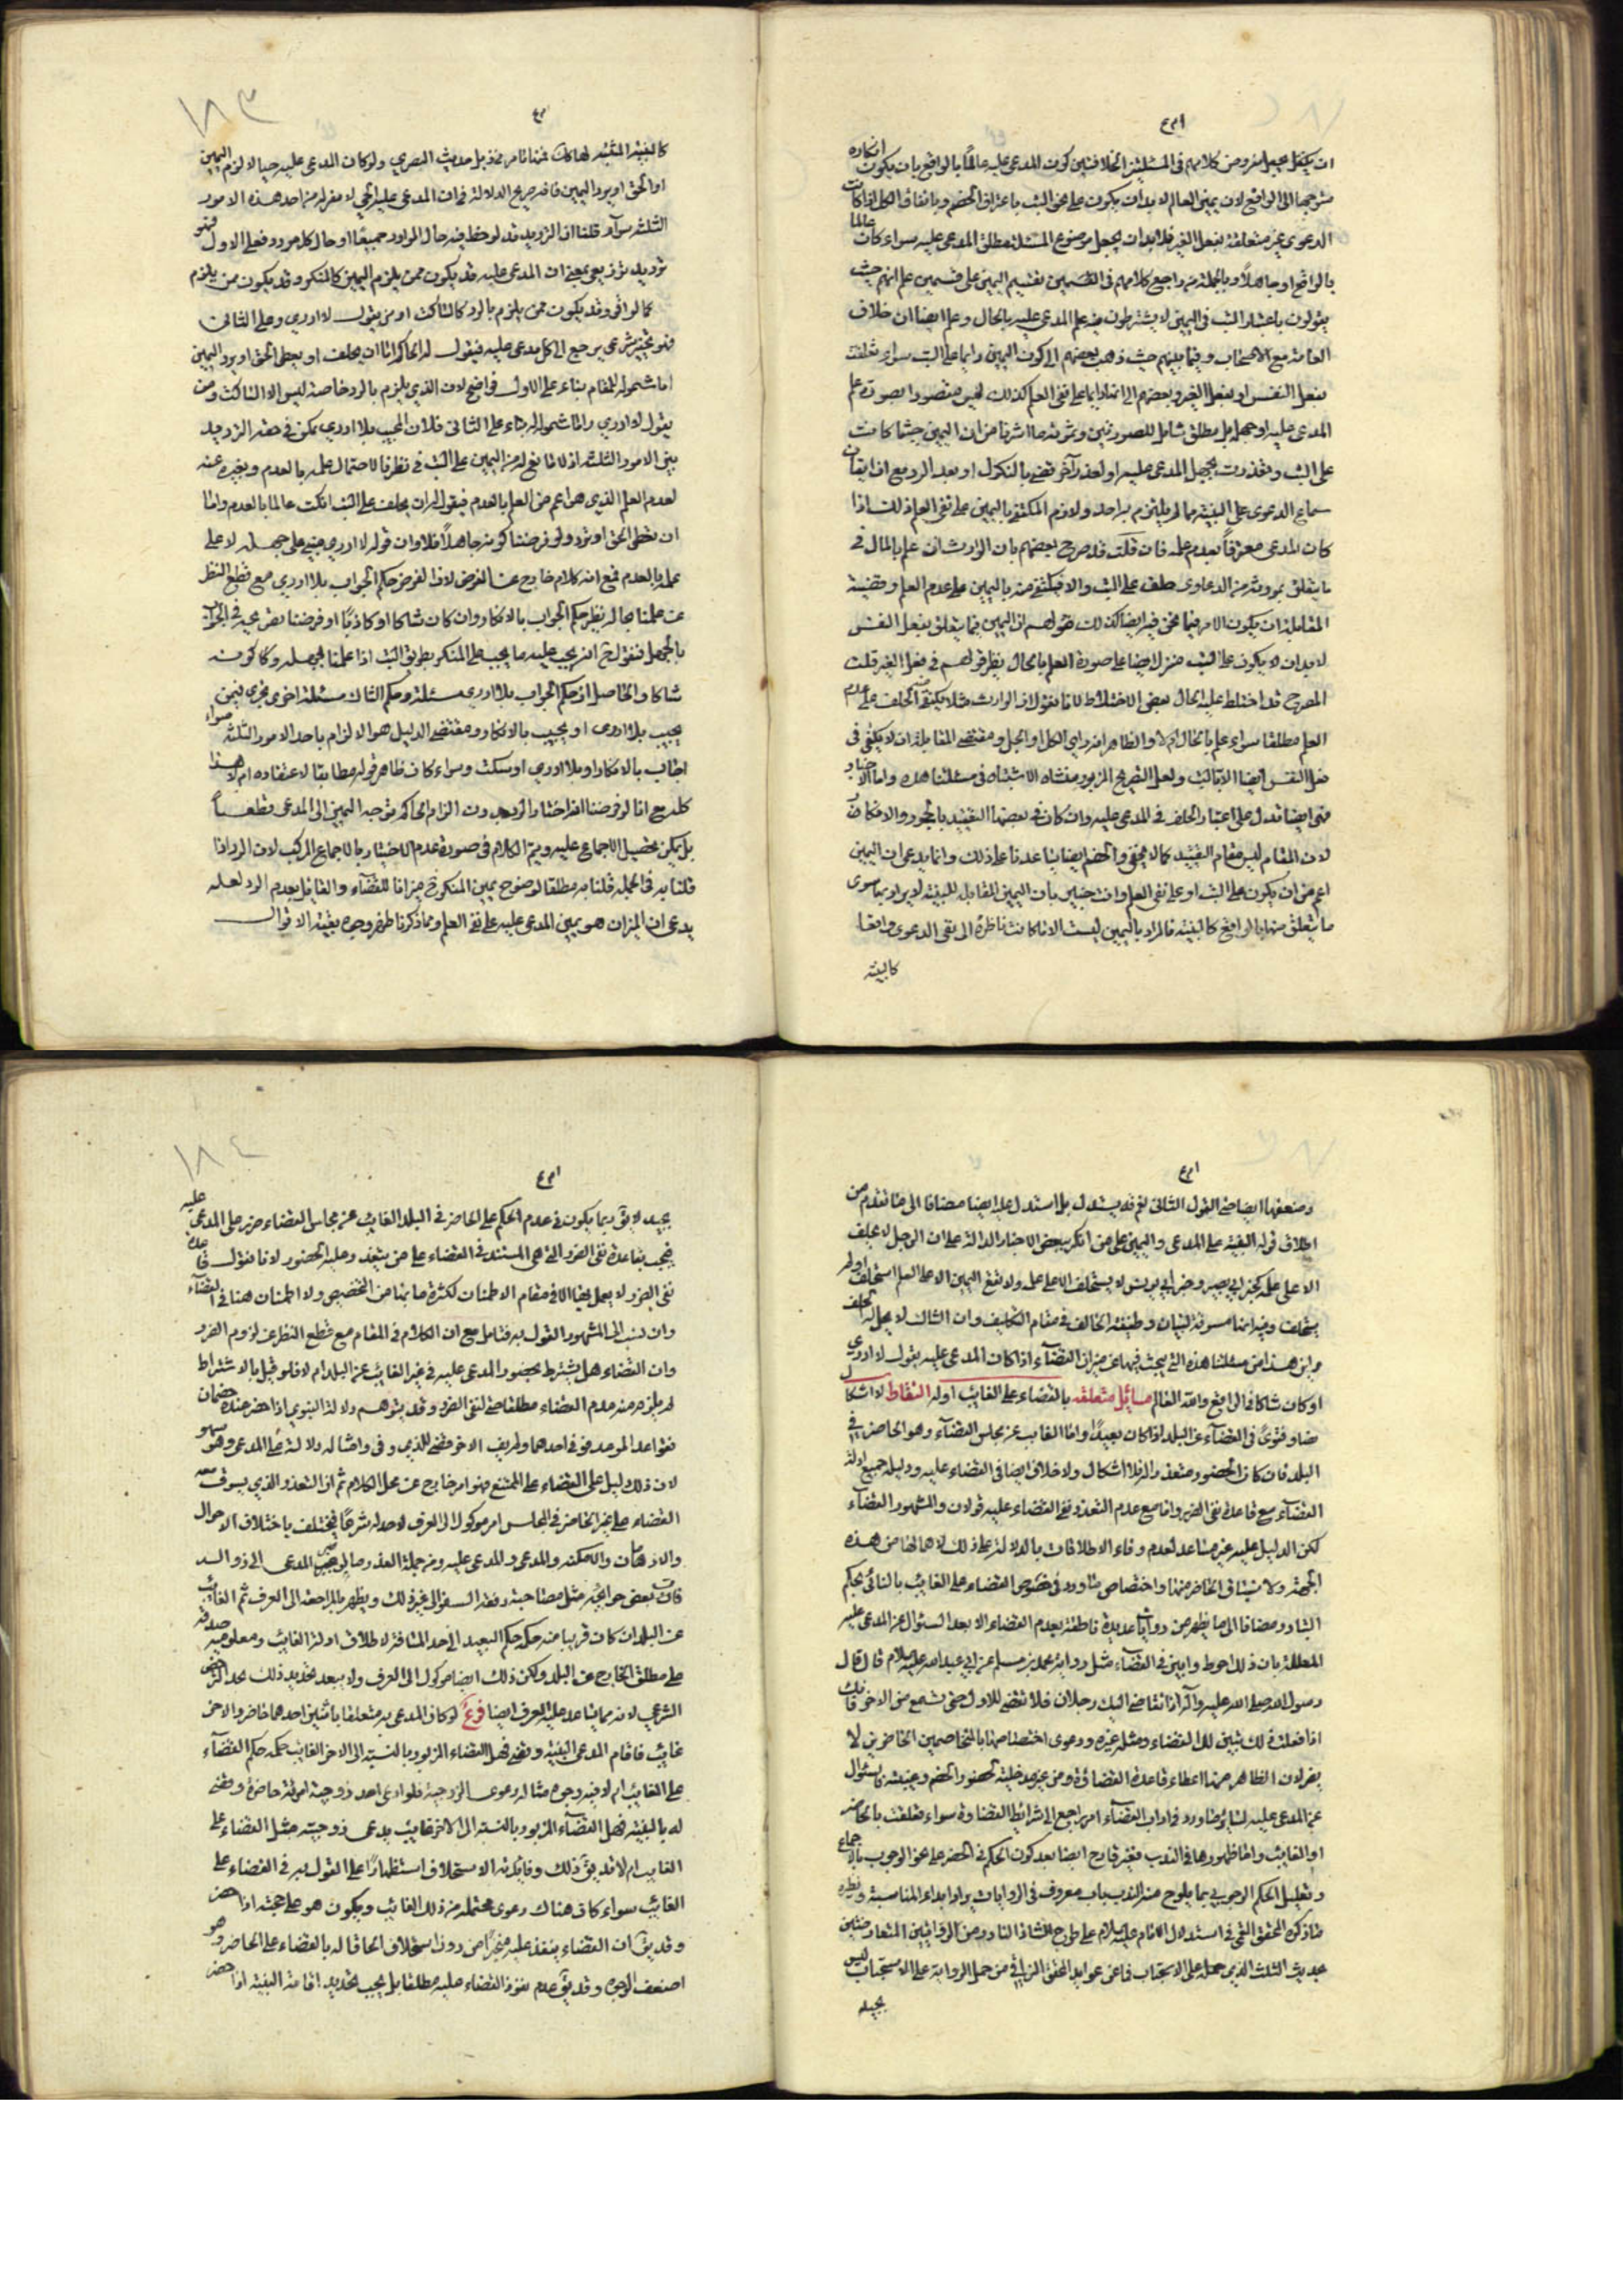 ان يكتفى بجعل مفروض كلامهم فى المسئلتين الخلافيتين كون المدعى عليه عالماً بالواقع بان يكون انكاره
متوجها الى الواقع لان يمين العالم لا بد ان يكون على نحو البت باعتراف الخصم وباتفاق الكل اذا كانت
الدعوى غير متعلقة بفعل الغير فلا بد ان يجعل موضوع المسئلة مطلق المدعى عليه سواء كان عالما
بالواقع او جاهلاً وبالجملة من راجع كلامهم فى القسمين تقسيم اليمين على قسمين علم انهم حيث
يقولون باعتبار البت فى اليمين لا يشترطون فيه علم المدعى عليه بالحال وعلم ايضا ان خلاف
العامة مع الاصحاب وفيما بينهم حيث ذهب بعضهم الى كون اليمين دايما على البت سواء تعلقت
بفعل النفس او بفعل الغير وبعضهم الى انها دايما على نفى العلم كذلك ليس مقصورا بصورة علم
المدعى عليه او جهله بل مطلق شامل للصورتين وثمرته ما اشرنا من ان اليمين حيثما كانت
على البت وتعذرت بجهل المدعى عليه او لعذر آخر قضى بالنكول او بعد الرد مع
سماع الدعوى على البينة ما لم يلتزم براحد ولازم المكتفى باليمين على نفى العلم اذلك اذا
كان المدعى معترفاً بعدم علمه فان قلت قد صرح بعضهم بان الوارث ان علم بالحال فى
ما يتعلق بمورثه من الدعاوى حلف على البت والا فيكتفى منه باليمين على عدم العلم وقضية
المقابلة ان يكون الامر فيما نحن فيه ايضا كذلك فقولهم ان اليمين فيما يتعلق بفعل النفس
لا بد ان لا يكون على البت منزل ايضا على صورة العلم بالحال نظير قولهم فى فعل الغير قلت
المصرح قد اختلط عليه الحال بعض الاختلاط لانا نقول ان الوارث مثلا يكتفى منه الحلف على عدم
العلم مطلقا سواء علم بالحال ام لا والظاهر انه راى الكل او الجل ومقتضى المقابلة ان لا يكفى فى
فعل النفس ايضا الا بالبت ولعل التصريح المزبور منشاه الاشتباه فى مسئلتنا هذه واما الاخبار
فهى ايضا تدل على اعتبار الحلف فى المدعى عليه وان كان فى بعضها التقييد بالجحود والانكار
لان المقام ليس مقام التقييد كما لا يخفى والخصم ايضا يساعدنا على ذلك وانما يدعى ان اليمين
اعم من ان يكون على البت او على نفى العلم وانت خبير بان اليمين المقابلة للبينة لا يراد بها سوى
ما يتعلق منها بالواقع كالبينة فالمراد باليمين ليست الا ما كانت ناظرة الى نفى الدعوى واقعا
كالبينة
كالبينة المثبتة لها كك
او الحق او يرد اليمين فانه صريح الدلالة فى ان المدعى عليه الحى لا مفر له من احد هذه الامور
الثلثة سواء قلنا ان الترديد قد لوحظ فيه حال الموارد جميعا او حال كل مورد فعلى الاول فهو
ترديد توزيعى بمعنى ان المدعى عليه قد يكون ممن يلزم اليمين كالمنكر وقد يكون ممن يلزم
كما لو اقر وقد يكون ممن يلزم بالرد كالساكت او من يقول لا ادرى وعلى الثانى
فهو تخيير شرعى يرجع الى كل مدعى عليه فيقول له الحاكم اما ان يحلف او يعطى الحق او يرد اليمين
اما شموله للمقام بناء على الاول فواضح لان الذى يلزم بالرد خاصة ليس الا الساكت ومن
يقول لا ادرى واما شموله بناء على الثانى فلان المجيب بلا ادرى يمكن فى حقه الترديد
بين الامور الثلثة اذ لا مانع له من اليمين على البت فى نظرنا لاحتمال علمه بالعدم ويخبره عنه
لعدم العلم الذى هو اعم من العلم بالعدم فيقول له ان يحلف على البت ان كنت عالما بالعدم واما
ان تعطى الحق او ترد ولو فرضنا كونه جاهلاً فلا وان قوله لا ادرى مبنى على جهله لا على
علمه بالعدم فمع انه كلام خارج عن الفرض لان الفرض حكم الجواب بلا ادرى مع قطع النظر
عن علمنا بحاله نظير حكم الجواب بالانكار وان كان شاكا او كاذبا او فرضنا تصريحه فى الجواب
بالجهل فنقول ح انه يجب عليه ما يجب على المنكر بطريق البت اذا علمنا بجهله وكا كونه
شاكا والحاصل ان حكم الجواب بلا ادرى مسئلة وحكم الشاك مسئلة اخرى تجرى فيمن
يجيب بلا ادرى او يجيب بالانكار ومقتضى الدليل هو الالزام باحد الامور الثلثة سواء
اجاب بالانكار او بلا ادرى او سكت وسواء كان ظاهر قوله مطابقا لاعتقاده ام لا هذا
كله مع انا لو فرضنا اختيار الرد بدون الزام الحاكم توجه اليمين الى المدعى قطعاً
بل يمكن تحصيل الاجماع عليه ويتم الكلام فى صورة عدم الاختيار بالاجماع المركب لان الرد اذا
قلنا به فى الجملة قلنا به مطلقا لوضوح يمين المنكر ح ميزانا للقضاء والقايل بعدم الرد لعله
يدعى ان الميزان هو يمين المدعى عليه على نفى العلم ومما ذكرنا ظهر وجوه بقية الاقوال
وضعفها ايضا حتى القول الثانى نعم قد يستدل بل استدل عليه ايضا مضافا الى ما تقدم من
اطلاق قوله البينة على المدعى واليمين على من انكر ببعض الاخبار الدالة على ان الرجل لا يحلف
الا على علمه كخبر ابى بصير وخبر ابى يونس لا يستحلف الا على علمه ولا تقع اليمين الا على العلم استحلف او لم
يستحلف وفيه انها مسوقة لبيان وظيفة الحالف فى مقام التكليف وان الشاك لا يحل له الحلف
واين هذا من مسئلتنا هذه التى يبحث فيها عن ميزان القضاء اذا كان المدعى عليه يقول لا ادرى
او كان شاكا فى الواقع والله العالم مسائل متعلقة بالقضاء على الغايب اوله النقاط لا اشكال
نصا وفتوىً فى القضاء عن البلد اذا كان بعيداً واما الغايب عن مجلس القضاء وهو الحاضر فى
البلد فان كان الحضور متعذرا له فلا اشكال ولا خلاف ايضا فى القضاء عليه ودليله جميع ادلة
القضاء مع قاعدة نفى الضرر واما مع عدم التعذر ففى القضاء عليه قولان والمشهور القضاء
لكن الدليل عليه غير مساعد لعدم وفاء الاطلاقات بالدلالة على ذلك لاهمالها من هذه
الجهة ولا سيما فى الحاضر منها واختصاص ما ورد فى خصوص القضاء على الغايب بالنائى بحكم
التبادر مضافا الى ما يظهر من روايات عديدة ناطقة بعدم القضاء الا بعد السئوال عن المدعى عليه
المعللة بان ذلك احوط وابين فى القضاء مثل رواية محمد بن مسلم عن ابى عبد الله عليه السلام قال قال
رسول الله صلى الله عليه وآله اذا تقاضى اليك رجلان فلا تقضى للاول حتى تسمع من الاخر فانك
اذا فعلت ذلك تبين لك القضاء ومثله غيره ودعوى اختصاصها بالمتخاصمين الحاضرين لا
يضر لان الظاهر منها اعطاء قاعدة القضائة ومن غير مدخلية لحضور الخصم وغيبته فالسئوال
عن المدعى عليه لسائر ما ورد فى اداب القضاء امر راجع الى شرايط القضاوة سواء تعلقت بالحاضر
او الغايب واما ظهورها فى الندب فغير قادح ايضا بعد كون الحكم فى الحضر على نحو الوجوب بالاجماع
وتعليل الحكم الوجوبى بما يلوح منه الندب باب معروف فى الروايات يراد ابداء المناسبة ونظيره
ما ذكره المحقق القمى فى استدلال الامام عليه السلام على طرح الشاذ النادر من الروايتين المتعارضتين
بحديث التثليث الذى حمله على الاستحباب فما عن عوايد المحقق النراقى من حمل الرواية على الاستحباب ليس
بجيد
بجيد لا يق ربما يكون فى عدم الحكم على الحاضر فى البلد الغايب عن مجلس القضاء ضرر على المدعى عليه
فيجب بقاعدة نفى الضرر التى هى المستند فى القضاء على من يتعذر عليه الحضور لانا نقول قاعدة
نفى الضرر لا يعمل بها الا فى مقام الاطمئنان لكثرة ما بنا من التخصيص ولا اطمئنان هنا فى القضاء
وان نسب الى المشهور القول به فتامل مع ان الكلام فى المقام مع قطع النظر عن لزوم الضرر
وان القضاء هل يشترط بحضور المدعى عليه فى غير الغايب عن البلد ام لا فلو قيل بالاشتراط
لم يلزم منه عدم القضاء مطلقا حتى لنفى الضرر وقد يتوهم دلالة النبوى اذا حضر عنده خصمان
فتواعد الموعد فوفى احدهما ولم يف الاخر قضى للذى وفى وامثاله دلالة على المدعى وهو سهو
لان ذلك دليل على القضاء على الممتنع فهو امر خارج عن محل الكلام ثم ان التعذر الذى يسوغ معه
القضاء على غير الحاضر فى المجلس امر موكول الى العرف لا حد له شرعاً فيختلف باختلاف الاحوال
والازمان والامكنة والمدعى والمدعى عليه ومن جملة العذر ما لو المدعى الى
فات بعض حوائجه مثل مصاحبة رفقة السفر الى غير ذلك ويظهر بالمراجعة الى العرف ثم الغائب
عن البلد ان كان قريبا منه حكمه حكم البعيد الى حد المسافة لاطلاق ادلة الغايب ومعلومية صدقه
على مطلق الخارج عن البلد ولكن ذلك ايضا موكول الى العرف ولا يبعد تحديد ذلك بحد الترخص
الشرعى لانه مما يساعد عليه العرف ايضا فرع لو كان المدعى به متعلقا باثنين احدهما حاضر والاخر
غايب فاقام المدعى البينة وقضى فهل القضاء المزبور بالنسبة الى الاخر الغايب حكمه حكم القضاء
على الغايب ام لا فيه وجوه مثاله دعوى الزوجية فلو ادعى احد زوجية امرئة حاضرة وقضى
له بالبينة فهل القضاء المزبور بالنسبة الى الاخر غايب يدعى زوجيته مثل القضاء على
الغايب ام لا قد يق ذلك وفايدته الاستحلاف استظهاراً على القول به فى القضاء على
الغائب سواء كان هناك دعوى محتملة من ذلك الغايب ويكون هو على حجته اذا حضر
وقد يق ان القضاء ينفذ عليه منجزاً من دون استحلاف الحاقا له بالقضاء على الحاضر وهو
اضعف الوجوه وقد يق عدم نفوذ القضاء عليه مطلقا بل يجب تجديد اقامة البينة اذا حضر